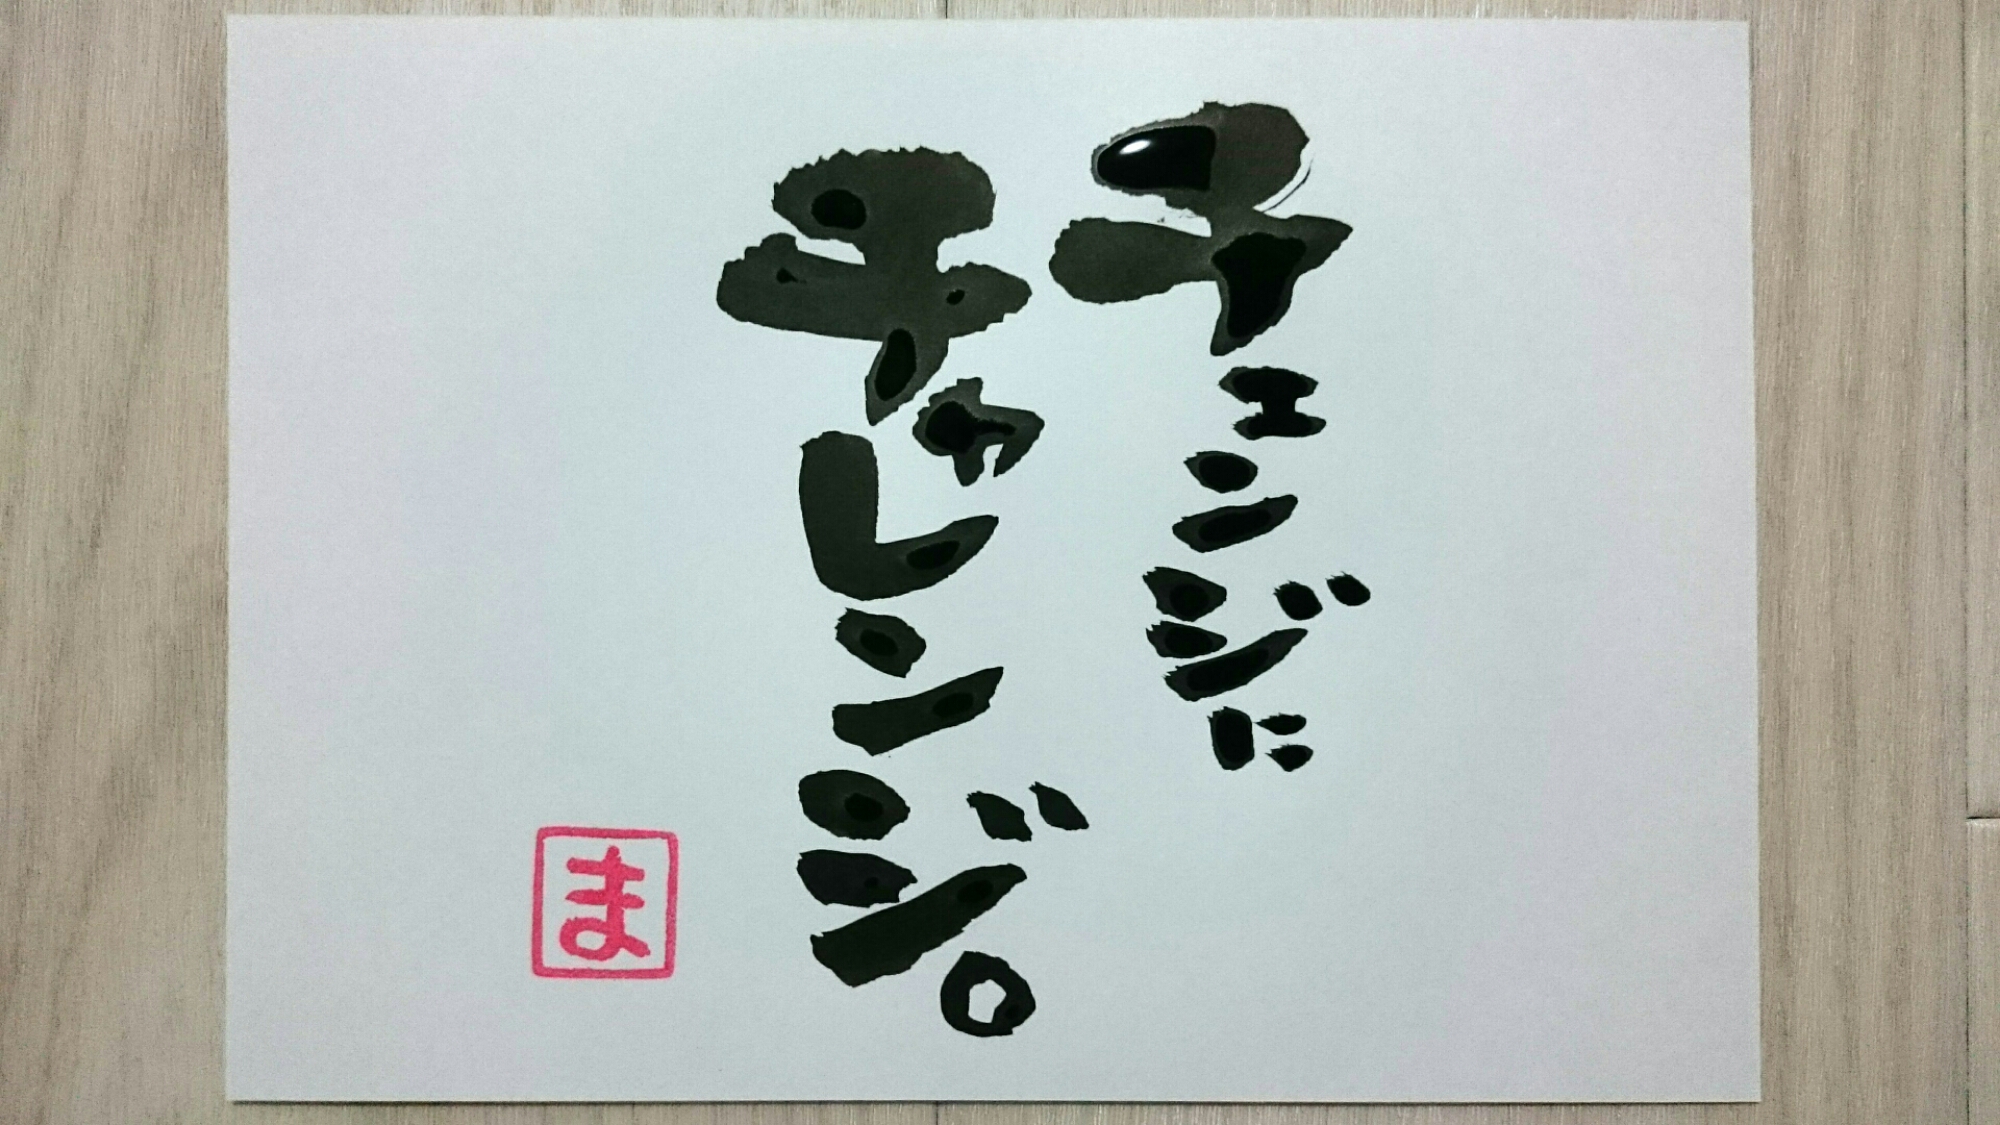 チェンジに
チャレンジ。
ま